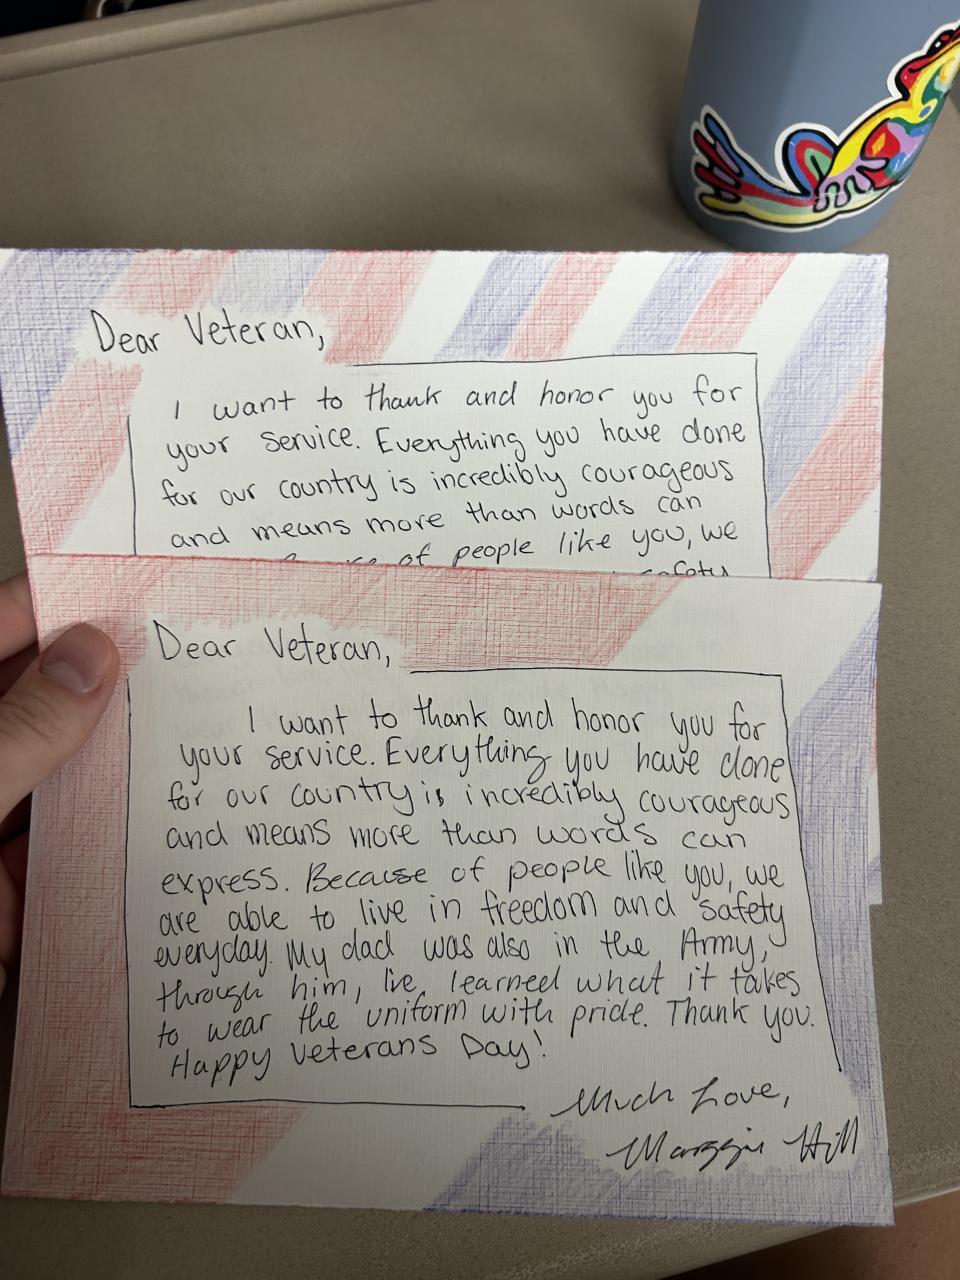 Dear Veteran,
I want to thank and honor you for
your service. Everything you have done
for our country is incredibly courageous
and means more than words can
of people like you, we
safety
Dear Veteran,
I want to thank and honor you for
your service. Everything you have done
for our country is incredibly courageous
and means more than words can
express. Because of people like you, we
are able to live in freedom and safety
everyday. My dad was also in the Army,
through him, I've learned what it takes
to wear the uniform with pride. Thank you.
Happy Veterans Day!
Much Love,
Marggie Hill